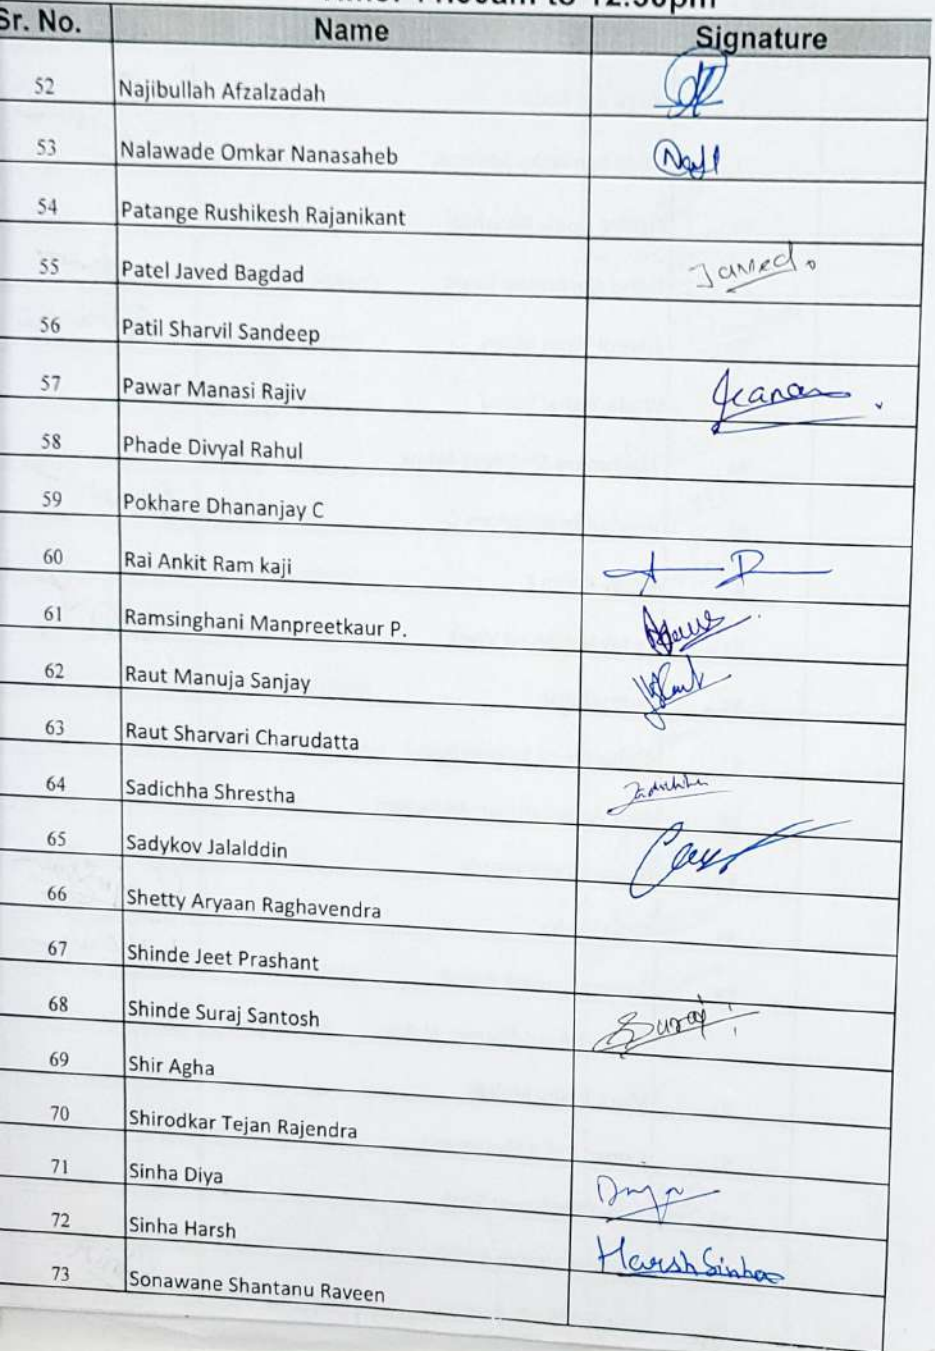 Sr. No. Name Signature
52 Najibullah Afzalzadah
53 Nalawade Omkar Nanasaheb
54 Patange Rushikesh Rajanikant
55 Patel Javed Bagdad Javed.
56 Patil Sharvil Sandeep
57 Pawar Manasi Rajiv
58 Phade Divyal Rahul
59 Pokhare Dhananjay C
60 Rai Ankit Ram kaji
61 Ramsinghani Manpreetkaur P.
62 Raut Manuja Sanjay
63 Raut Sharvari Charudatta
64 Sadichha Shrestha
65 Sadykov Jalalddin
66 Shetty Aryaan Raghavendra
67 Shinde Jeet Prashant
68 Shinde Suraj Santosh Suraj
69 Shir Agha
70 Shirodkar Tejan Rajendra
71 Sinha Diya
72 Sinha Harsh Harsh Sinha
73 Sonawane Shantanu Raveen